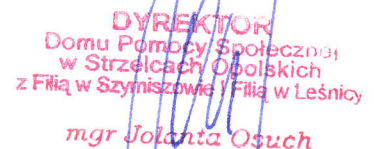 DYREKTOR
Domu Pomocy Społecznej
w Strzelcach Opolskich
z Filią w Szymiszowie i Filią w Leśnicy
mgr Jolanta Osuch